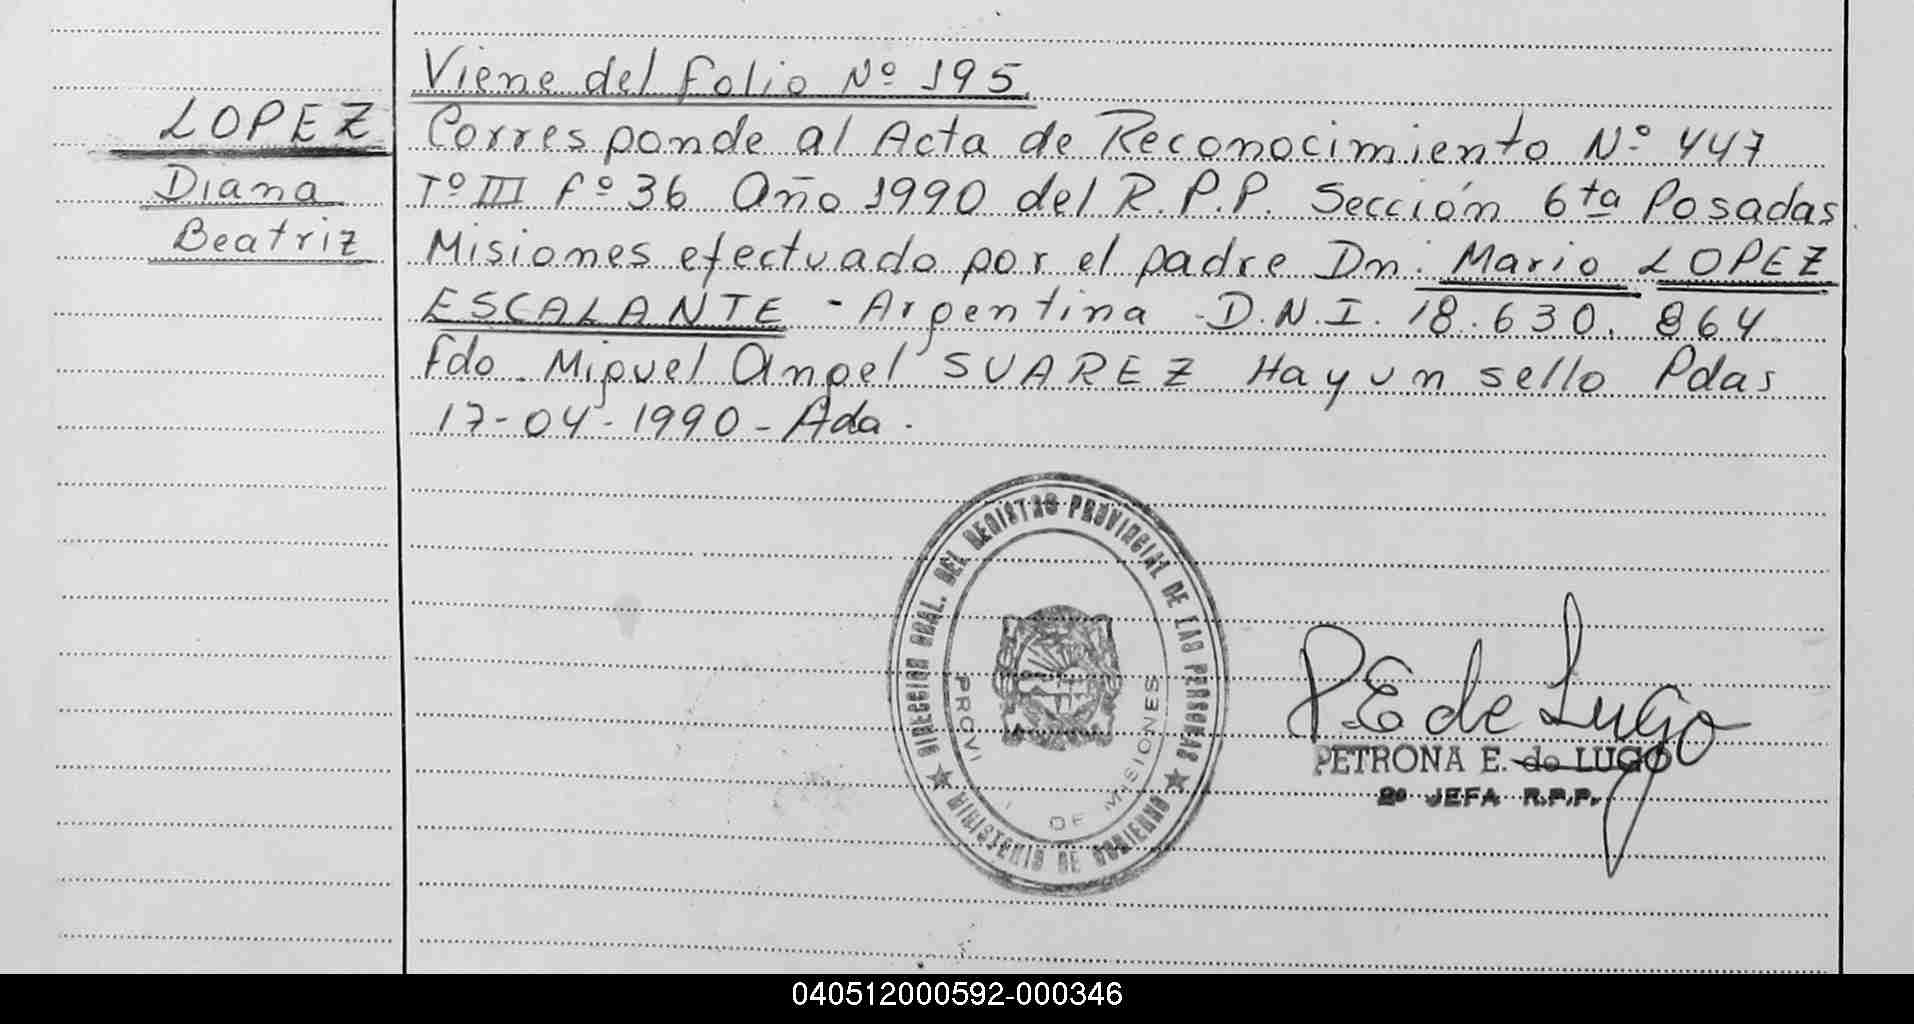 Viene del folio Nº 195.
LOPEZ
Diana
Beatriz
Corresponde al Acta de Reconocimiento Nº 447
Tº III Fº 36 Año 1990 del R.P.P. Sección 6ta Posadas
Misiones efectuado por el padre Dn. Mario LOPEZ
ESCALANTE - Argentina - D.N.I. 18.630.864
Fdo. Miguel Angel SUAREZ Hay un sello Pdas
17-04-1990 - Ada.
DIRECCION GRAL. DEL REGISTRO PROVINCIAL DE LAS PERSONAS
MINISTERIO DE GOBIERNO
PROVI DE MISIONES
P.E de Lugo
PETRONA E. de LUGO
2º JEFA R.P.P.
040512000592-000346